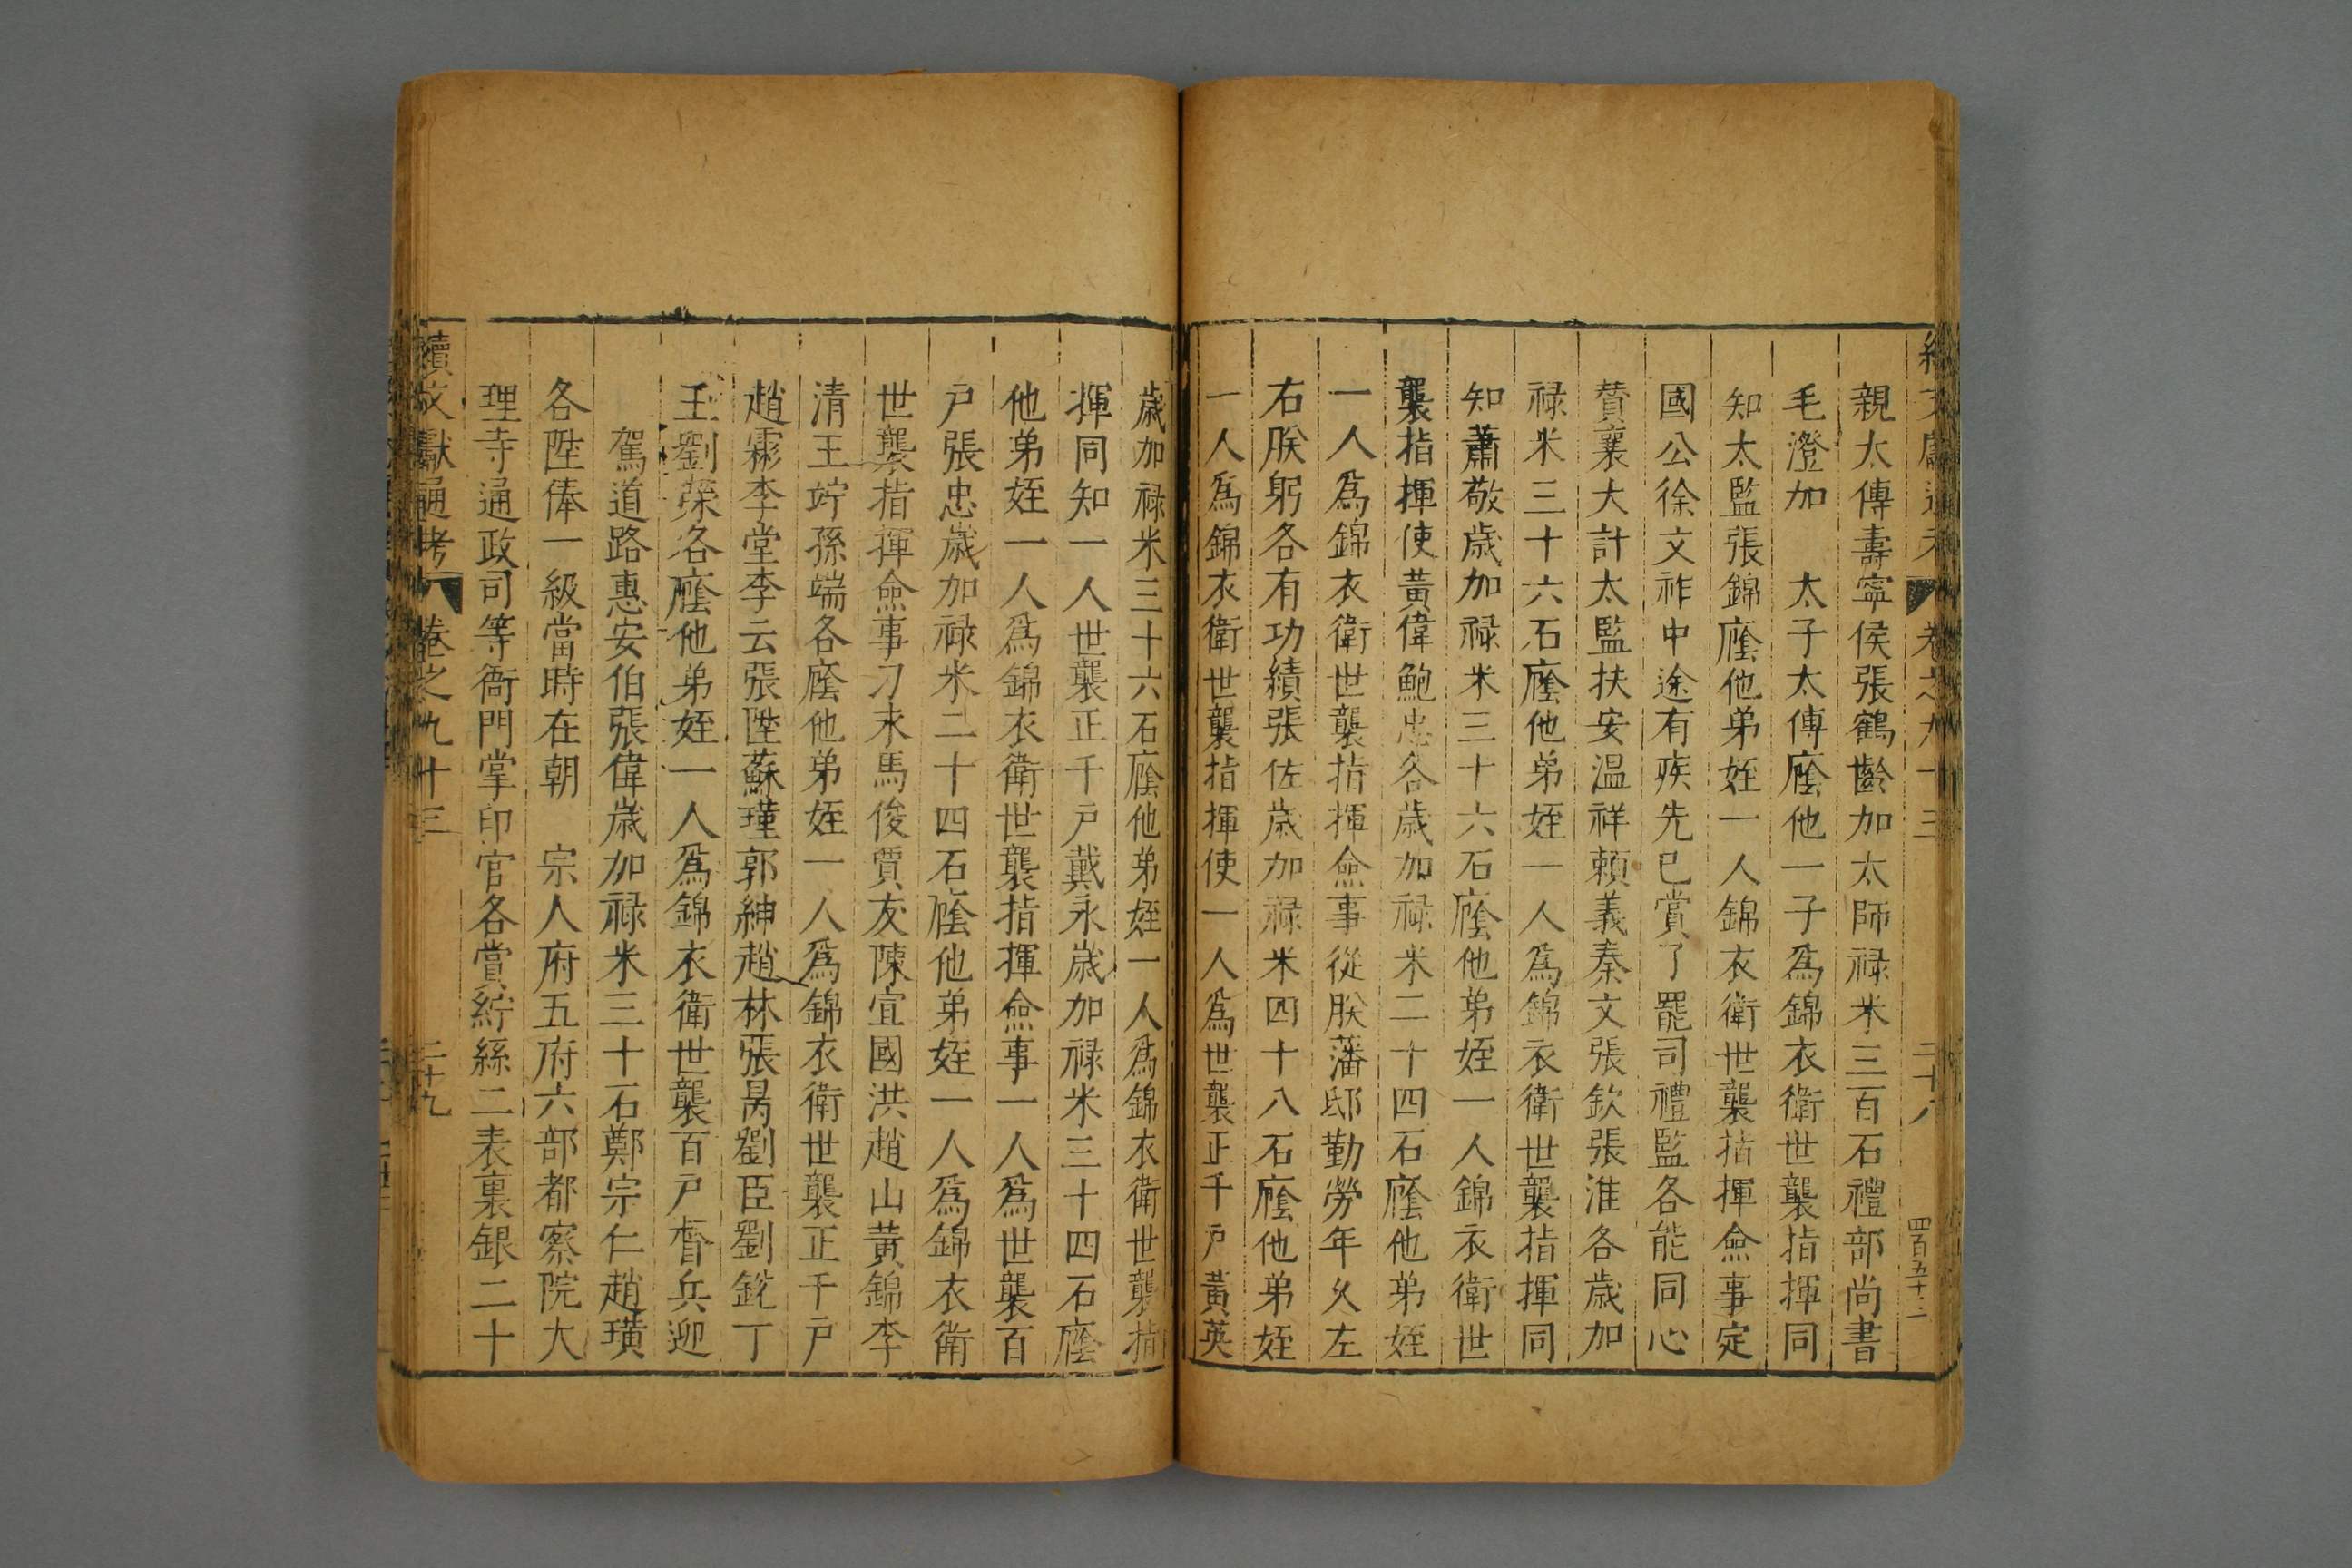 親太傅壽寧侯張鶴齡加太師禄米三百石禮部尚書
毛澄加 太子太傅廕他一子為錦衣衛世襲指揮同
知太監張錦廕他弟姪一人錦衣衛世襲指揮僉事定
國公徐文祚中途有疾先已賞了罷司禮監各能同心
賛襄大計太監扶安温祥賴義秦文張欽張淮各歳加
禄米三十六石廕他弟姪一人爲錦衣衛世襲指揮同
知蕭敬歳加禄米三十六石廕他弟姪一人錦衣衛世
襲指揮使黃偉鮑忠各歳加禄米二十四石廕他弟姪
一人爲錦衣衛世襲指揮僉事從朕藩邸勤勞年久左
右朕躬各有功績張佐歳加禄米四十八石廕他弟姪
一人爲錦衣衛世襲指揮使一人爲世襲正千戸黃英
歳加禄米三十六石廕他弟姪一人爲錦衣衛世襲指
揮同知一人世襲正千戸戴永歳加禄米三十四石廕
他弟姪一人爲錦衣衛世襲指揮僉事一人爲世襲百
戸張忠歳加禄米二十四石廕他弟姪一人爲錦衣衛
世襲指揮僉事刁永馬俊賈友陳宜國洪趙山黃錦李
清王竚孫端各廕他弟姪一人爲錦衣衛世襲正千戸
趙霦李堂李云張陞蘇瑾郭紳趙林張昺劉臣劉銳丁
玉劉榮各廕他弟姪一人爲錦衣衛世襲百戸督兵迎
駕道路惠安伯張偉歳加禄米三十石鄭宗仁趙璜
各陞俸一級當時在朝 宗人府五府六部都察院大
理寺通政司等衙門掌印官各賞紵絲二表裏銀二十
續文獻通考 卷之九十三 二十九